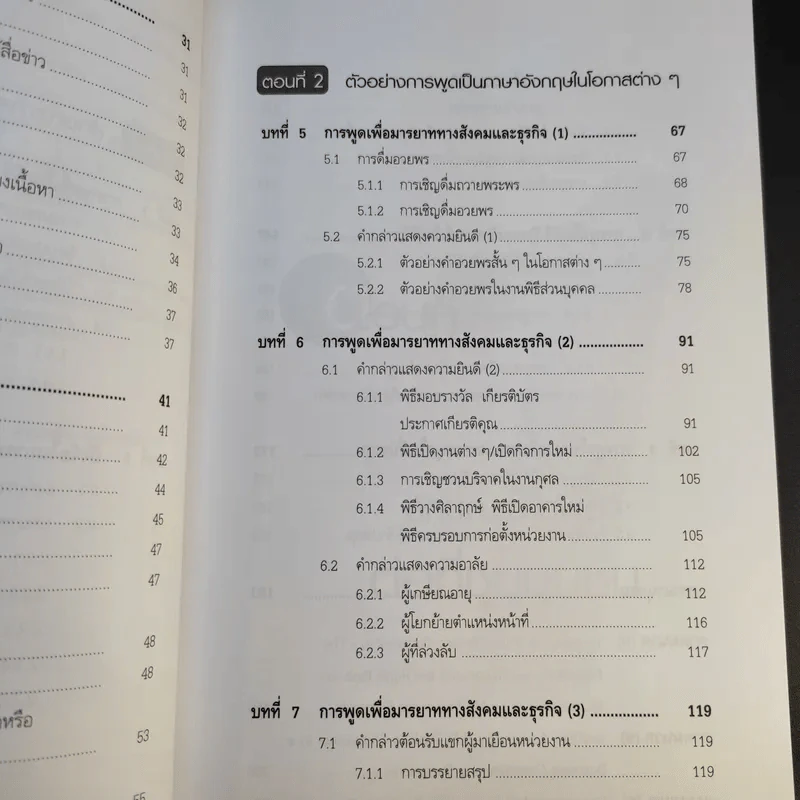 31
สื่อข่าว 31
31
32
32
32
งเนื้อหา 33
33
34
36
37
37
41
41
42
44
45
47
47
48
48
หรือ 53
55
ตอนที่ 2 ตัวอย่างการพูดเป็นภาษาอังกฤษในโอกาสต่าง ๆ
บทที่ 5 การพูดเพื่อมารยาททางสังคมและธุรกิจ (1) ................ 67
5.1 การดื่มอวยพร ................ 67
5.1.1 การเชิญดื่มถวายพระพร ................ 68
5.1.2 การเชิญดื่มอวยพร ................ 70
5.2 คำกล่าวแสดงความยินดี (1) ................ 75
5.2.1 ตัวอย่างคำอวยพรสั้น ๆ ในโอกาสต่าง ๆ .......... 75
5.2.2 ตัวอย่างคำอวยพรในงานพิธีส่วนบุคคล ............ 78
บทที่ 6 การพูดเพื่อมารยาททางสังคมและธุรกิจ (2) ................ 91
6.1 คำกล่าวแสดงความยินดี (2) ................ 91
6.1.1 พิธีมอบรางวัล เกียรติบัตร
ประกาศเกียรติคุณ ................ 91
6.1.2 พิธีเปิดงานต่าง ๆ/เปิดกิจการใหม่ ................ 102
6.1.3 การเชิญชวนบริจาคในงานกุศล ................ 105
6.1.4 พิธีวางศิลาฤกษ์ พิธีเปิดอาคารใหม่
พิธีครบรอบการก่อตั้งหน่วยงาน ................ 105
6.2 คำกล่าวแสดงความอาลัย ................ 112
6.2.1 ผู้เกษียณอายุ ................ 112
6.2.2 ผู้โยกย้ายตำแหน่งหน้าที่ ................ 116
6.2.3 ผู้ที่ล่วงลับ ................ 117
บทที่ 7 การพูดเพื่อมารยาททางสังคมและธุรกิจ (3) ................ 119
7.1 คำกล่าวต้อนรับแขกผู้มาเยือนหน่วยงาน ................ 119
7.1.1 การบรรยายสรุป ................ 119